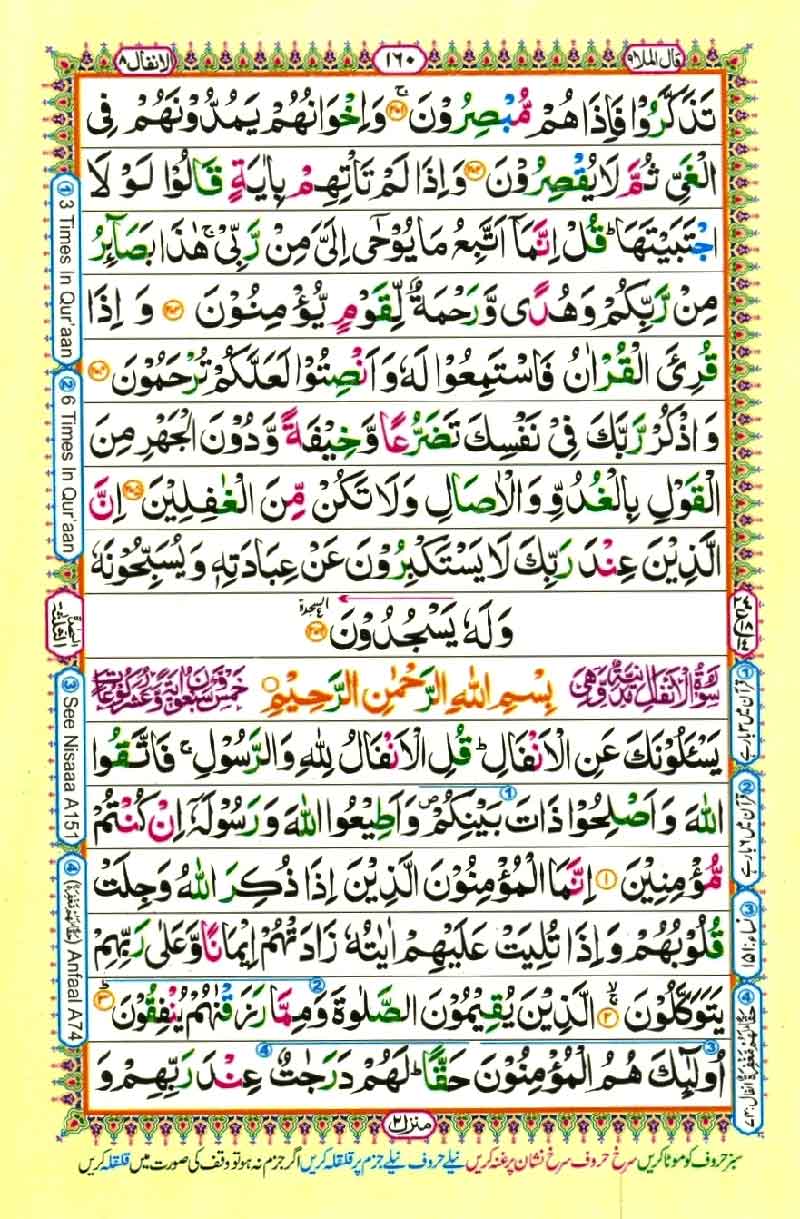 قال الملا ٩
١٦٠
الانفال ٨
تَذَكَّرُوْا فَاِذَا هُمْ مُّبْصِرُوْنَ ۚ﴿۲۰۱﴾ وَاِخْوَانُهُمْ يَمُدُّوْنَهُمْ فِى
الْغَىِّ ثُمَّ لَا يُقْصِرُوْنَ ﴿۲۰۲﴾ وَاِذَا لَمْ تَاْتِهِمْ بِاٰيَةٍ قَالُوْا لَوْ لَا
اجْتَبَيْتَهَا ؕ قُلْ اِنَّمَاۤ اَتَّبِعُ مَا يُوْحٰٓى اِلَىَّ مِنْ رَّبِّىْ ۚ هٰذَا بَصَآئِرُ
مِنْ رَّبِّكُمْ وَهُدًى وَّرَحْمَةٌ لِّقَوْمٍ يُّؤْمِنُوْنَ ﴿۲۰۳﴾ وَ اِذَا
قُرِئَ الْقُرْاٰنُ فَاسْتَمِعُوْا لَهٗ وَاَنْصِتُوْا لَعَلَّكُمْ تُرْحَمُوْنَ ﴿۲۰۴﴾
وَاذْكُرْ رَّبَّكَ فِىْ نَفْسِكَ تَضَرُّعًا وَّخِيْفَةً وَّدُوْنَ الْجَهْرِ مِنَ
الْقَوْلِ بِالْغُدُوِّ وَالْاٰصَالِ وَلَا تَكُنْ مِّنَ الْغٰفِلِيْنَ ﴿۲۰۵﴾ اِنَّ
الَّذِيْنَ عِنْدَ رَبِّكَ لَا يَسْتَكْبِرُوْنَ عَنْ عِبَادَتِهٖ وَيُسَبِّحُوْنَهٗ
وَلَهٗ يَسْجُدُوْنَ ﴿۲۰۶﴾ السجدة
سُوْرَةُ الْاَنْفَالِ مَدَنِيَّةٌ وَّهِىَ بِسْمِ اللهِ الرَّحْمٰنِ الرَّحِيْمِ خَمْسٌ وَّسَبْعُوْنَ اٰيَةً وَّعَشَرُ رُكُوْعَاتٍ
يَسْئَلُوْنَكَ عَنِ الْاَنْفَالِ ؕ قُلِ الْاَنْفَالُ لِلّٰهِ وَالرَّسُوْلِ ۚ فَاتَّقُوا
اللهَ وَاَصْلِحُوْا ذَاتَ بَيْنِكُمْ ۪ وَاَطِيْعُوا اللهَ وَرَسُوْلَهٗۤ اِنْ كُنْتُمْ
مُّؤْمِنِيْنَ ﴿۱﴾ اِنَّمَا الْمُؤْمِنُوْنَ الَّذِيْنَ اِذَا ذُكِرَ اللهُ وَجِلَتْ
قُلُوْبُهُمْ وَاِذَا تُلِيَتْ عَلَيْهِمْ اٰيٰتُهٗ زَادَتْهُمْ اِيْمَانًا وَّعَلٰى رَبِّهِمْ
يَتَوَكَّلُوْنَ ۚۙ﴿۲﴾ الَّذِيْنَ يُقِيْمُوْنَ الصَّلٰوةَ وَمِمَّا رَزَقْنٰهُمْ يُنْفِقُوْنَ ؕ﴿۳﴾
اُولٰٓئِكَ هُمُ الْمُؤْمِنُوْنَ حَقًّا ؕ لَهُمْ دَرَجٰتٌ عِنْدَ رَبِّهِمْ وَ
① 3 Times In Qur'aan
② 6 Times In Qur'aan
③ See Nisaaa A151
④ Anfaal A74
① قرآن میں ۳ بارے
② قرآن میں ۶ بارے
③ نساء:۱۵۱
منزل ٢
سبز حروف کو موٹا کریں سرخ حروف سرخ نشان پر غنہ کریں نیلے حروف نیلے جزم پر قلقلہ کریں اگر جزم نہ ہو تو وقف کی صورت میں قلقلہ کریں